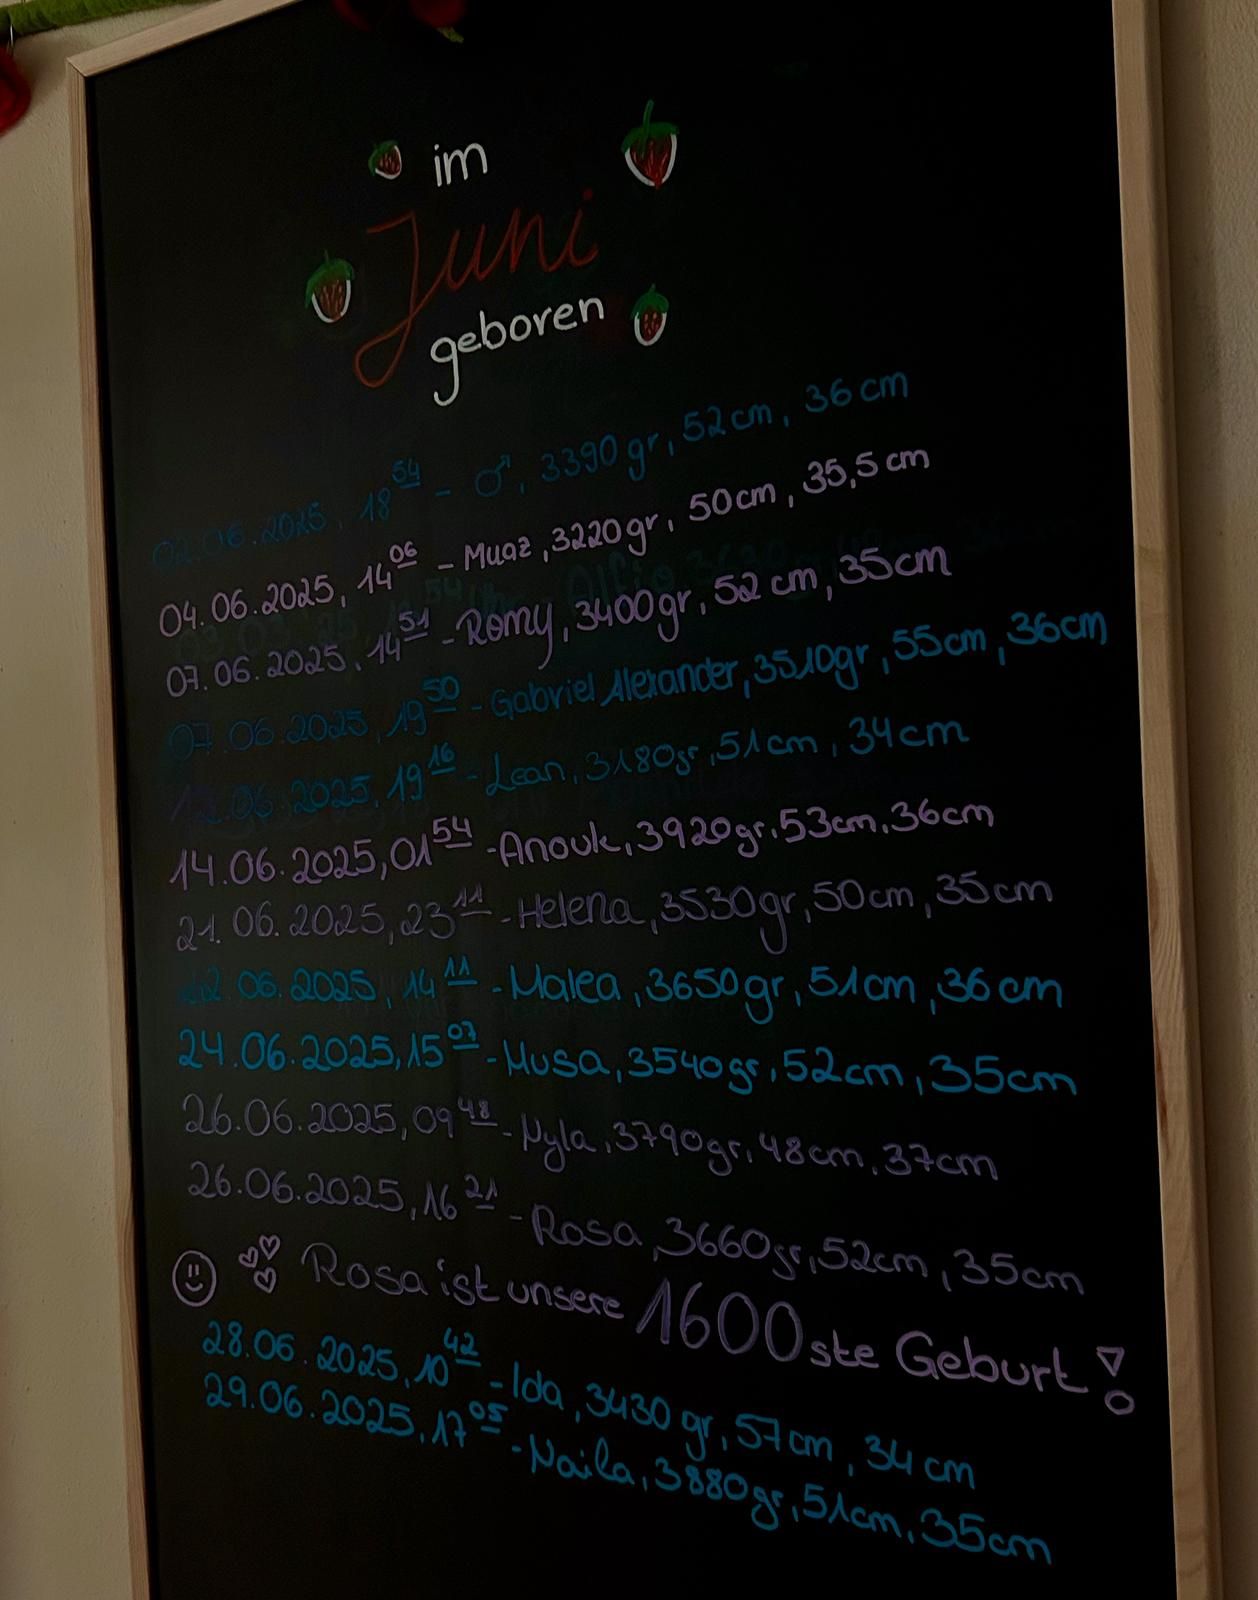 im
Juni
geboren
02.06.2025, 18 54 - ♂, 3390 gr, 52cm, 36cm
04.06.2025, 14 06 - Muaz, 3220gr, 50cm, 35,5cm
07.06.2025, 14 51 - Romy, 3400gr, 52cm, 35cm
07.06.2025, 19 50 - Gabriel Alexander, 3510gr, 55cm, 36cm
12.06.2025, 19 16 - Lean, 3180gr, 51cm, 34cm
14.06.2025, 01 54 - Anouk, 3920gr, 53cm, 36cm
21.06.2025, 23 11 - Helena, 3530gr, 50cm, 35cm
22.06.2025, 14 11 - Malea, 3650gr, 51cm, 36cm
24.06.2025, 15 07 - Musa, 3540gr, 52cm, 35cm
26.06.2025, 09 48 - Nyla, 3790gr, 48cm, 37cm
26.06.2025, 16 21 - Rosa, 3660gr, 52cm, 35cm
Rosa ist unsere 1600ste Geburt!
28.06.2025, 10 42 - Ida, 3430 gr, 57cm, 34cm
29.06.2025, 17 05 - Naila, 3880gr, 51cm, 35cm